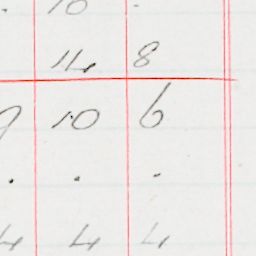 . 10 .
14 8
9 10 6
. . .
4 4 4